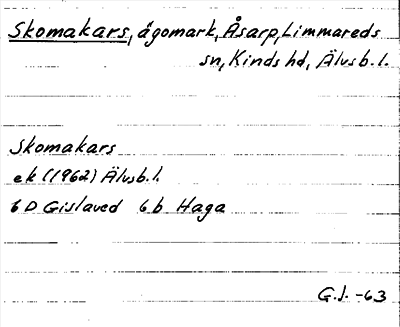 Skomakars, ägomark, Åsarp, Limmareds
sn, Kinds hd, Älvsb. l.
Skomakars
ek (1962) Älvsb. l.
6D Gislaved 6b Haga
G.J. -63